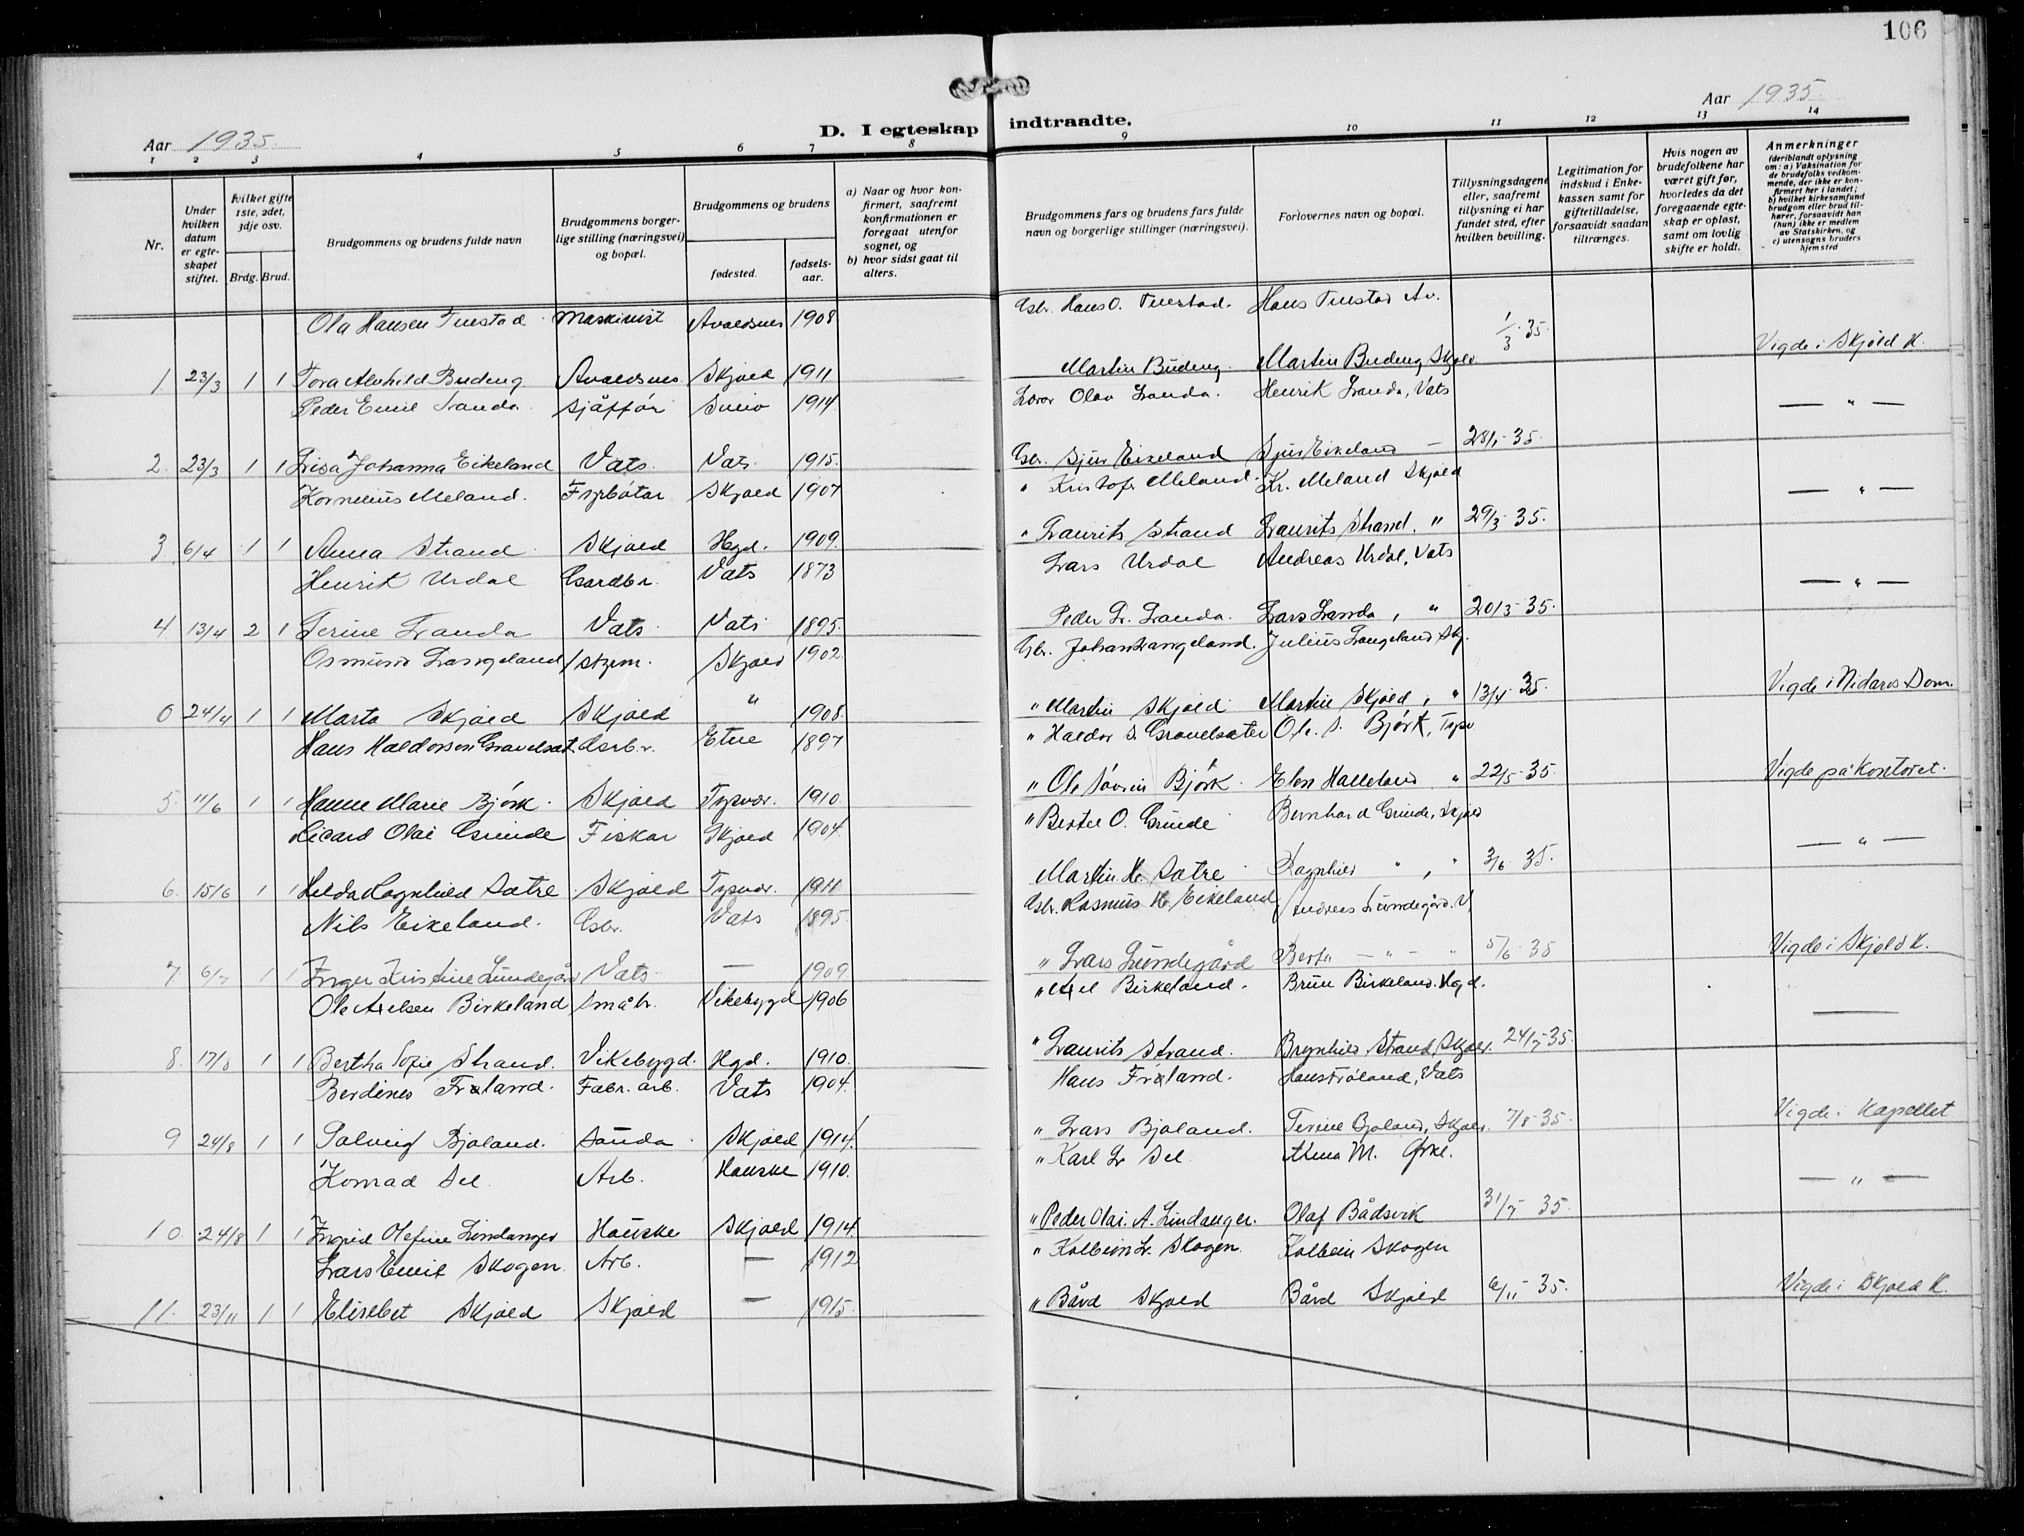 106
Aar 1935.
Aar 1935.
D. I egteskap indtraadte.
1 2 3 4 5 6 7 8 9 10 11 12 13 14
Nr.
Under hvilken datum er egteskapet stiftet.
hvilket gifte 1ste, 2det, 3dje osv.
Brdg. Brud.
Brudgommens og brudens fulde navn
Brudgommens borgerlige stilling (næringsvei) og bopæl.
Brudgommens og brudens
fødested. fødselsaar.
a) Naar og hvor konfirmert, saafremt konfirmationen er foregaat utenfor sognet, og
b) hvor sidst gaat til alters.
Brudgommens fars og brudens fars fulde navn og borgerlige stillinger (næringsvei).
Forlovernes navn og bopæl.
Tillysningsdagene eller, saafremt tillysning ei har fundet sted, efter hvilken bevilling.
Legitimation for indskud i Enkekassen samt for giftetilladelse, forsaavidt saadan tiltrænges.
Hvis nogen av brudefolkene har været gift før, hvorledes da det foregaaende egteskap er opløst, samt om lovlig skifte er holdt.
Anmerkninger (deriblandt oplysning om: a) Vaksination for de brudefolks vedkommende, der ikke er konfirmert her i landet; b) hvilket kirkesamfund brudgom eller brud tilhører, forsaavidt han (hun) ikke er medlem av Statskirken, og c) utensogns bruders hjemsted
Ola Hansen Tuestad Maskinist Avaldsnes 1908 Gbr. Hans O. Tuestad. Hans Tuestad Av. 1/3 35.
1 23/3 1 1 Tora Alvhild Budeng Avaldsnes Skjold 1911 Martin Budeng. Martin Budeng, Skjold Vigde i Skjold K.
Peder Emil Landa. sjåffør Sveio 1914 Lærar Olav Landa. Henrik Landa, Vats — " —
2. 23/3 1 1 Lisa Johanna Eikeland Vats. Vats. 1915. Gbr. Sjur Eikeland Sjur Eikeland — 28/1 35.
Kornelius Meland. Fyrbøtar Skjold 1907 " Kristofer Meland. Kr. Meland Skjold — " —
3 6/4 1 1 Anna Strand Skjold Hgd. 1909. " Laurits Strand Laurits Strand. " 29/3 35.
Henrik Urdal Gardbr. Vats 1873 Lars Urdal Andreas Urdal, Vats — " —
4 13/4 2 1 Serine Landa Vats Vats 1895. Peder L. Landa. Lars Landa, " 20/3 35.
Osmund Langeland styrm. Skjold 1902 Gbr. Johan Langeland. Julius Langeland Skj.
0 24/4 1 1 Marta Skjold Skjold " 1908. " Martin Skjold Martin Skjold, " 13/4 35. Vigde i Nidaros Dom.
Hans Haldorsen Gravelsæt. Gardbr. Etne 1897 " Haldor S. Gravelsæter Ole S. Bjørk, Tysv
5. 11/6 1 1 Hanne Marie Bjørk. Skjold Tysvær. 1910. " Ole Søvrin Bjørk. Elen Halleland " 22/5 35. Vigde på kontoret.
Ricard Olai Grinde Fiskar Skjold 1904. " Bertel O. Grinde Bernhard Grinde, Skjold — " —
6. 15/6 1 1 Hilda Ragnhild Sætre Skjold Tysvær. 1911 Martin H. Sætre Ragnhild " , " 3/6 35.
Nils Eikeland. Gbr. Vats 1895. Gbr. Rasmus H. Eikeland Andreas Lundegård. V.
7 6/7 1 1 Inger Kristine Lundegård Vats — 1909 " Lars Lundegård Berta — " — " 5/6 35 Vigde i Skjold K.
Ole Axelsen Birkeland småbr. Vikebygd 1906 " Axel Birkeland. Brun Birkeland. Hgd.
8. 17/8 1 1 Bertha Sofie Strand. Vikebygd. Hgd. 1910. " Laurits Strand. Brynhild Strand, Skjold. 24/7 35. —
Berdines Frøland. Fabr. arb. Vats 1904. Hans Frøland. Hans Frøland, Vats
9 24/8 1 1 Solveig Bjoland. Sauda. Skjold 1914. " Lars Bjoland. Terine Bjoland, Skjold. 7/8 35. Vigde i Kapellet
Konrad Sel Arb. Hauske 1910. " Karl L. Sel Alma M. Ørke. — " —
10. 24/8 1 1 Ingrid Olefine Lindanger Hauske Skjold 1914. " Peder Olai A. Lindanger. Olaf Bådsvik 31/7 35.
Lars Emil Skogen. Arb. — 1912 " Kolbein L. Skogen. Kolbein Skogen
11. 23/11 1 1 Elisebet Skjold Skjold — 1915. " Bård Skjold Bård Skjold 6/11 35. Vigde i Skjold K.